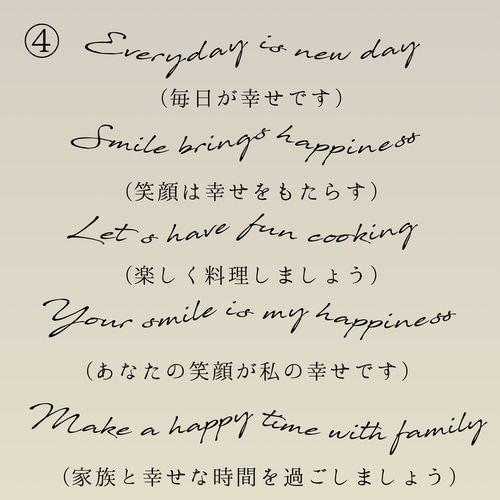 ④ Everyday is new day
(毎日が幸せです)
Smile brings happiness
(笑顔は幸せをもたらす)
Let s have fun cooking
(楽しく料理しましょう)
Your smile is my happiness
(あなたの笑顔が私の幸せです)
Make a happy time with family
(家族と幸せな時間を過ごしましょう)